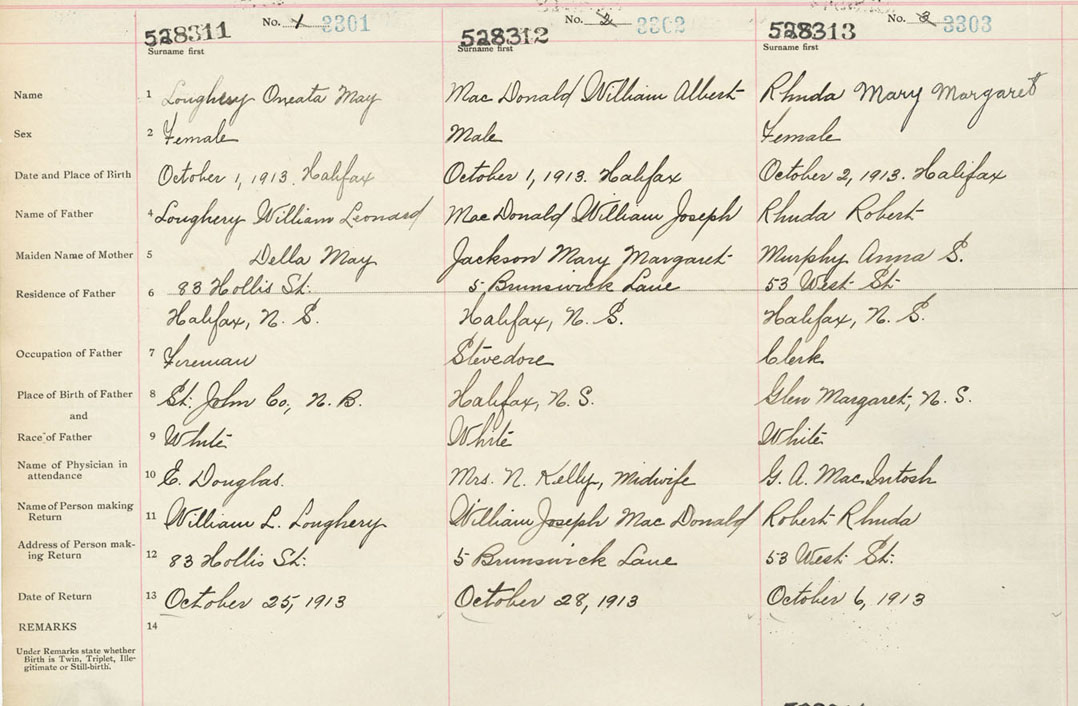 No. 1 3301 No. 2 3302 No. 3 3303
528311 528312 528313
Surname first Surname first Surname first
Name 1 Loughery Oneata May Mac Donald William Albert Rhuda Mary Margaret
Sex 2 Female Male Female
Date and Place of Birth October 1, 1913. Halifax October 1, 1913. Halifax October 2, 1913. Halifax
Name of Father 4 Loughery William Leonard Mac Donald William Joseph Rhuda Robert
Maiden Name of Mother 5 Della May Jackson Mary Margaret Murphy Anna S.
Residence of Father 6 83 Hollis St. 5 Brunswick Lane 53 West St.
Halifax, N. S. Halifax, N. S. Halifax, N. S.
Occupation of Father 7 Foreman Stevedore Clerk
Place of Birth of Father 8 St. John Co., N. B. Halifax, N. S. Glen Margaret, N. S.
and
Race of Father 9 White White White
Name of Physician in
attendance 10 E. Douglas. Mrs. N. Kelly, Midwife G. A. MacIntosh
Name of Person making
Return 11 William L. Loughery William Joseph Mac Donald Robert Rhuda
Address of Person mak-
ing Return 12 83 Hollis St. 5 Brunswick Lane 53 West St.
Date of Return 13 October 25, 1913 October 28, 1913 October 6, 1913
REMARKS 14
Under Remarks state whether
Birth is Twin, Triplet, Ille-
gitimate or Still-birth.